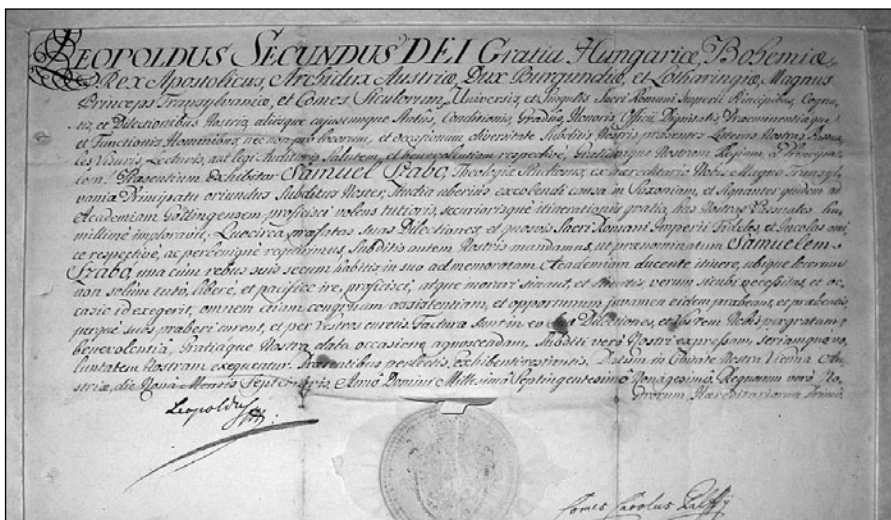 LEOPOLDUS SECUNDUS DEI Gratia Hungariæ, Bohemiæ,
Rex Apostolicus, Archidux Austriæ, Dux Burgundiæ, et Lotharingiæ, Magnus
Princeps Transylvaniæ, et Comes Siculorum, Universis, et Singulis Sacri Romani Imperii Principibus,
et Dilectionibus Nostris, aliisque cujuscunque Status, Conditionis, Gradus, Honoris, Officii, Dignitatis, Præeminentiæque,
et Functionis Hominibus, nec non pro locorum, et occasionum diversitate Subditis Nostris præsentes Literas Nostras Passua-
les Visuris, Lecturis, aut legi Audituris Salutem, et benevolentiam respectivè, Gratiamque Nostram Regiam, & Principa-
lem. Præsentium Exhibitor Samuel Szabo, Theologiæ Studiosus, ex hæreditario Nobis Magno Transyl-
vaniæ Principatu oriundus Subditus Noster, Studia uberius excolendi causa in Saxoniam, et signanter quidem ad
Academiam Göttingensem proficisci volens tutioris, securiorisque itinerationis gratia, has Nostras Passuales hu-
millimè imploravit. Quocirca præfatas suas Dilectiones, et quosvis Sacri Romani Imperii Fideles, et Incolas ami-
ce respectivè, ac perbenignè requirimus, Subditis autem Nostris mandamus, ut prænominatum Samuelem
Szabo, una cum rebus suis secum habitis, in suo ad memoratam Academiam ducente itinere, ubique locorum
non solum tutò, liberè, et pacificè ire, proficisci, atque morari sinant, et verum sicubi necessitas, et oc-
casio id exegerit, omnem etiam congruam assistentiam, et opportunum juvamen eidem præbeant, et præbeatis,
perque suos præberi curent, et per Vestros curetis. Facturæ sunt in eo Dilectiones, et Vos rem Nobis pergratam
benevolentiâ, Gratiâque Nostra data occasione agnoscendam. Subditi verò Nostri expressam, seriamque vo-
luntatem Nostram exequentur. Præsentibus perlectis, exhibenti restitutis. Datum in Civitate Nostra Vienna Au-
striæ, die Nonâ Mensis Septembris, Annô Domini Millesimô Septingentesimô Nonagesimô. Regnorum verò No-
strorum Hæreditariorum Primô.
Leopoldus
Comes Carolus Palffy